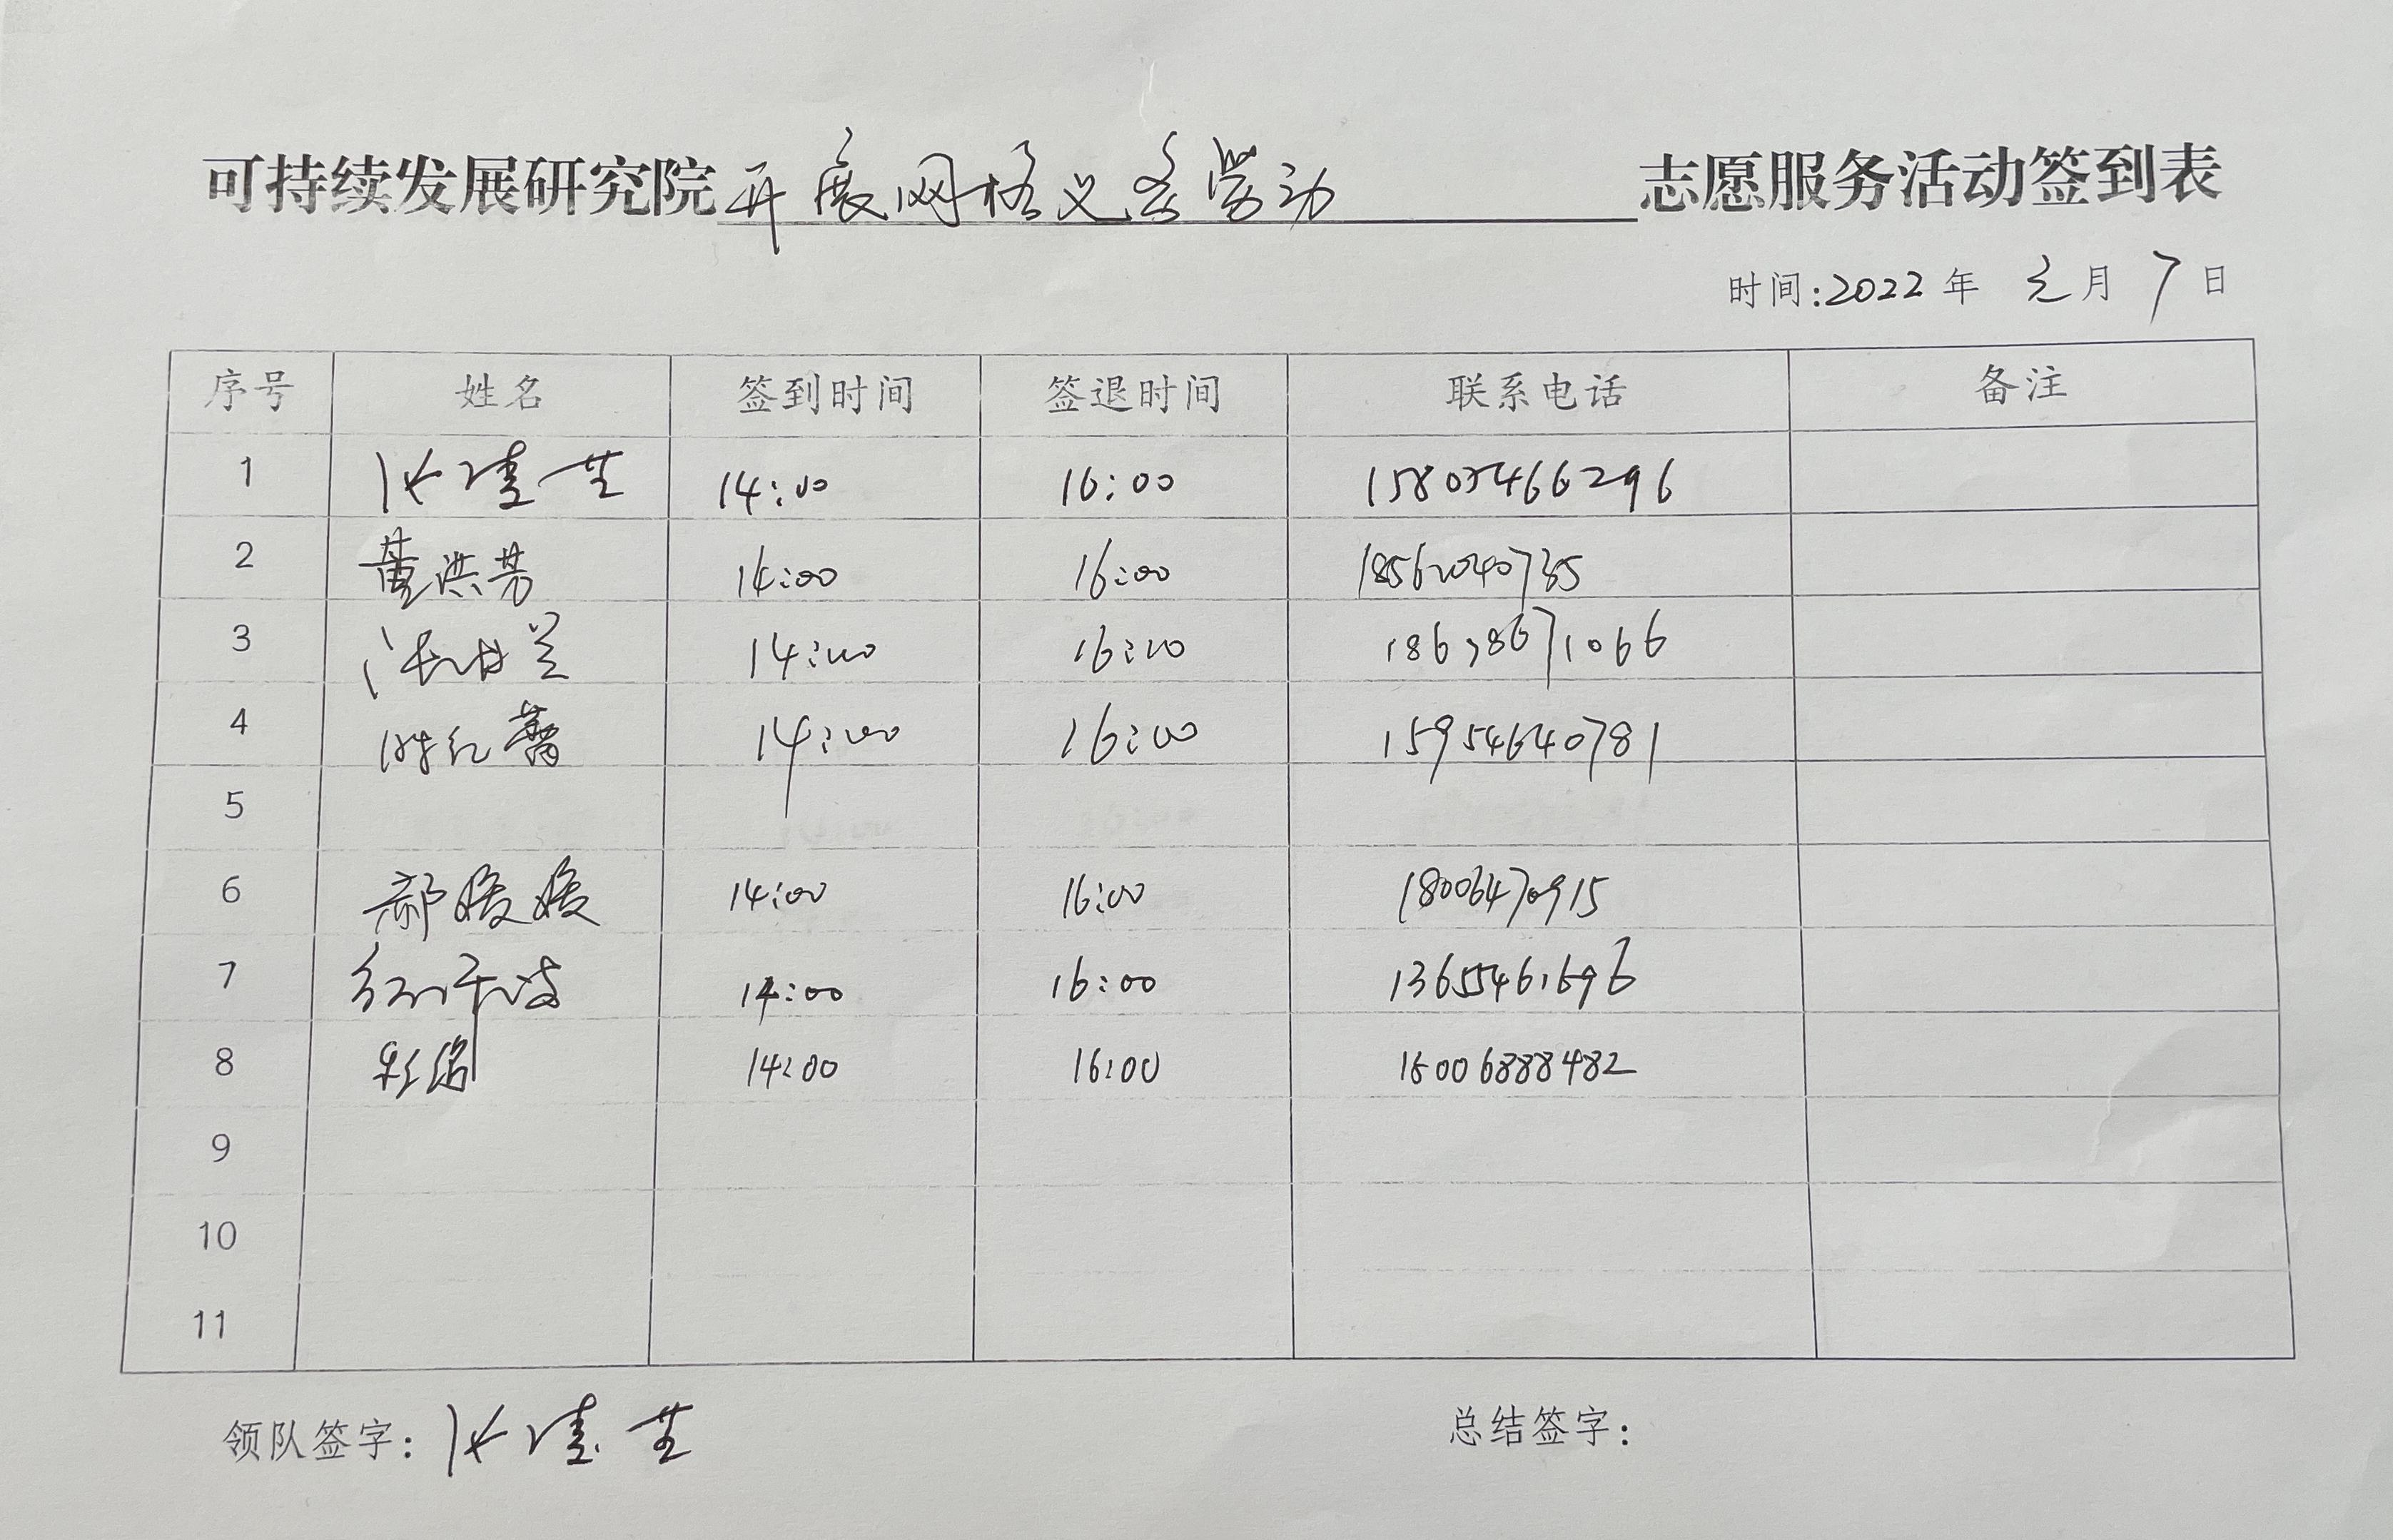 可持续发展研究院开展网格义务劳动志愿服务活动签到表
时间:2022年 元月 7日
序号 姓名 签到时间 签退时间 联系电话 备注
1 14:00 16:00 15805466296
2 董洪芳 14:00 16:00 18562040735
3 14:00 16:00
4 14:00 16:00 15954640781
5
6 郝媛媛 14:00 16:00 18006470915
7 14:00 16:00 13655461696
8 14:00 16:00 18006888482
9
10
11
领队签字:
总结签字: